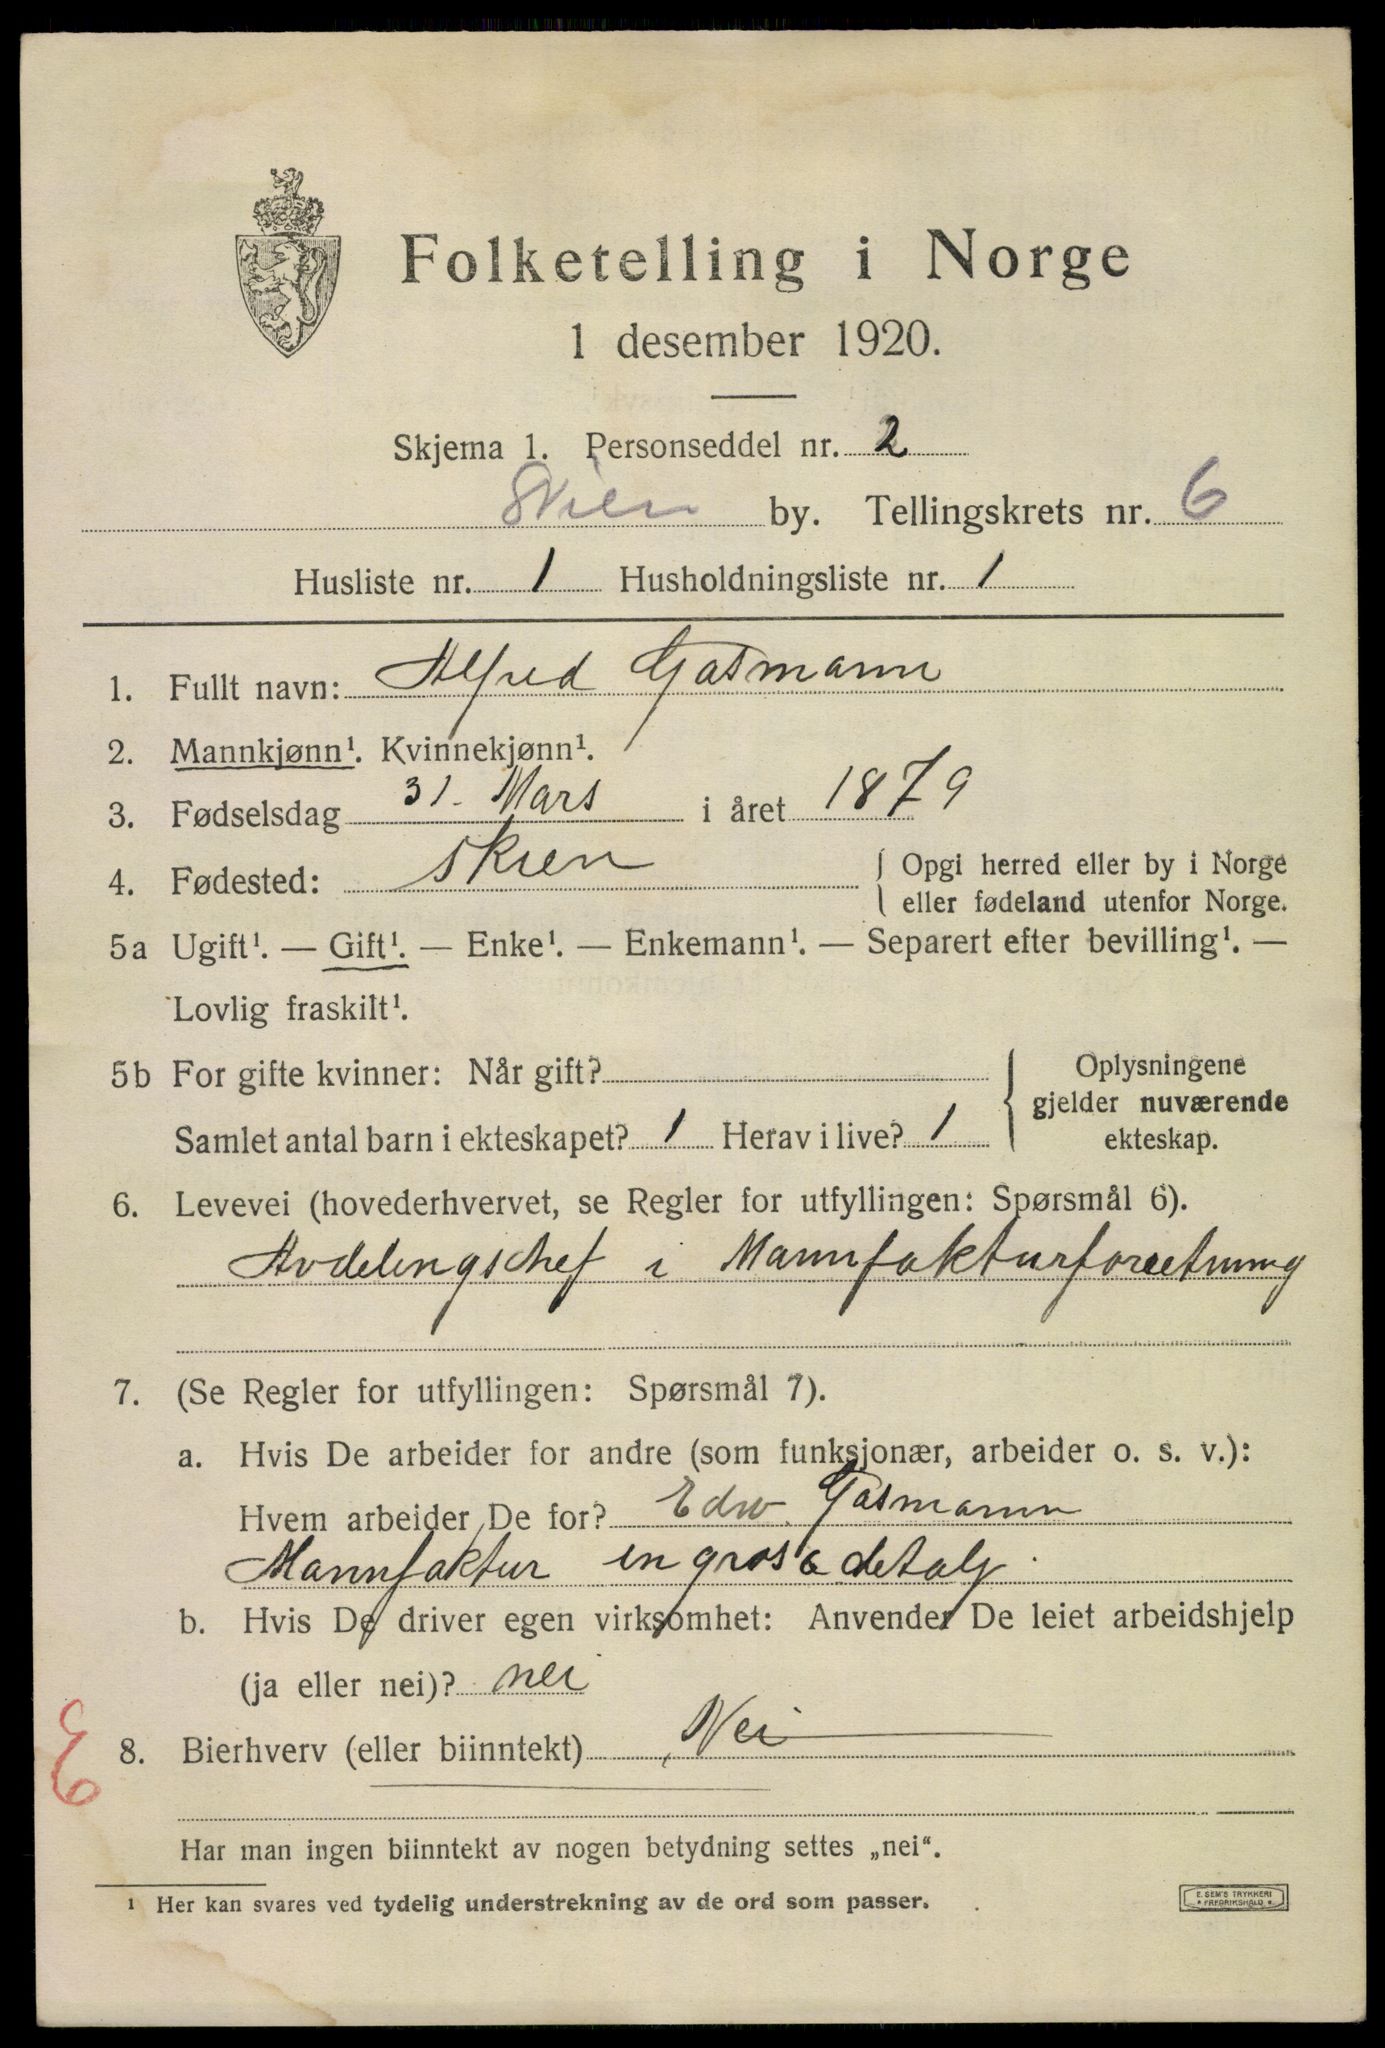 Folketelling i Norge
1 desember 1920.
Skjema 1. Personseddel nr. 2
Skien by. Tellingskrets nr. 6
Husliste nr. 1 Husholdningsliste nr. 1
1. Fullt navn: Alfred Gasmann
2. Mannkjønn¹. Kvinnekjønn¹.
3. Fødselsdag 31. Mars i året 1879
4. Fødested: Skien { Opgi herred eller by i Norge
eller fødeland utenfor Norge.
5a Ugift¹. — Gift¹. — Enke¹. — Enkemann¹. — Separert efter bevilling¹. —
Lovlig fraskilt¹.
5b For gifte kvinner: Når gift?
Samlet antal barn i ekteskapet? 1 Herav i live? 1
Oplysningene
gjelder nuværende
ekteskap.
6. Levevei (hovederhvervet, se Regler for utfyllingen: Spørsmål 6).
Avdelingschef i Mannfakturforretning
7. (Se Regler for utfyllingen: Spørsmål 7).
a. Hvis De arbeider for andre (som funksjonær, arbeider o. s. v.):
Hvem arbeider De for? Edw. Gasmann
Mannfaktur en gros & detalj.
b. Hvis De driver egen virksomhet: Anvender De leiet arbeidshjelp
(ja eller nei)? nei
8. Bierhverv (eller biinntekt) Nei
Har man ingen biinntekt av nogen betydning settes „nei“.
¹ Her kan svares ved tydelig understrekning av de ord som passer.
E. SEM'S TRYKKERI
* FREDRIKSHALD *